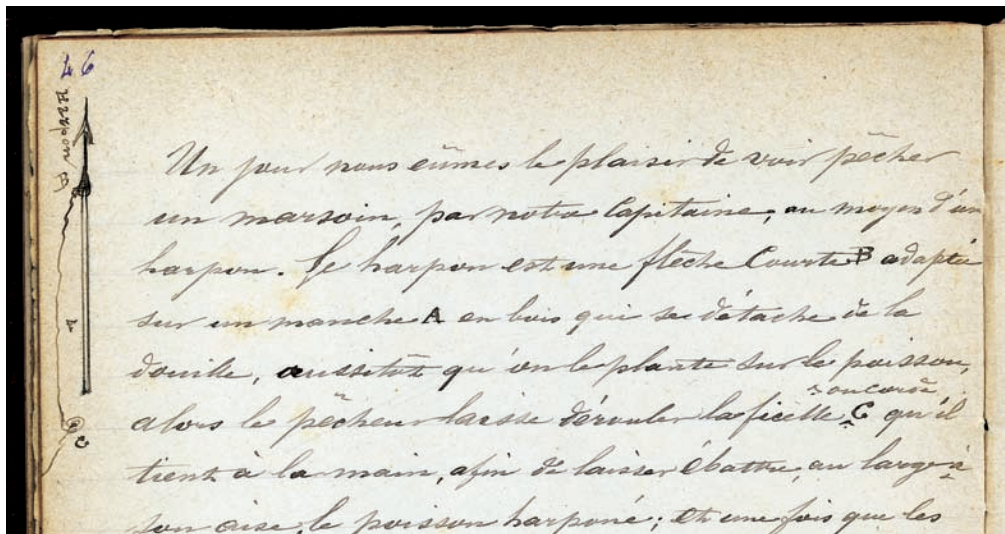 46
Harpon B
A
C
Un jour nous eûmes le plaisir de voir pêcher
un marsoin, par notre Capitaine, au moyen d'un
harpon. Le harpon est une flêche Courte B adaptée
sur un manche A en bois qui se détache de la
douille, aussitôt qu'on le plante sur le poisson,
ou corde
alors le pêcheur laisse dérouler la ficelle C qu'il
tient à la main, afin de laisser ébattre, au large à
son aise, le poisson harponé; et une fois que les